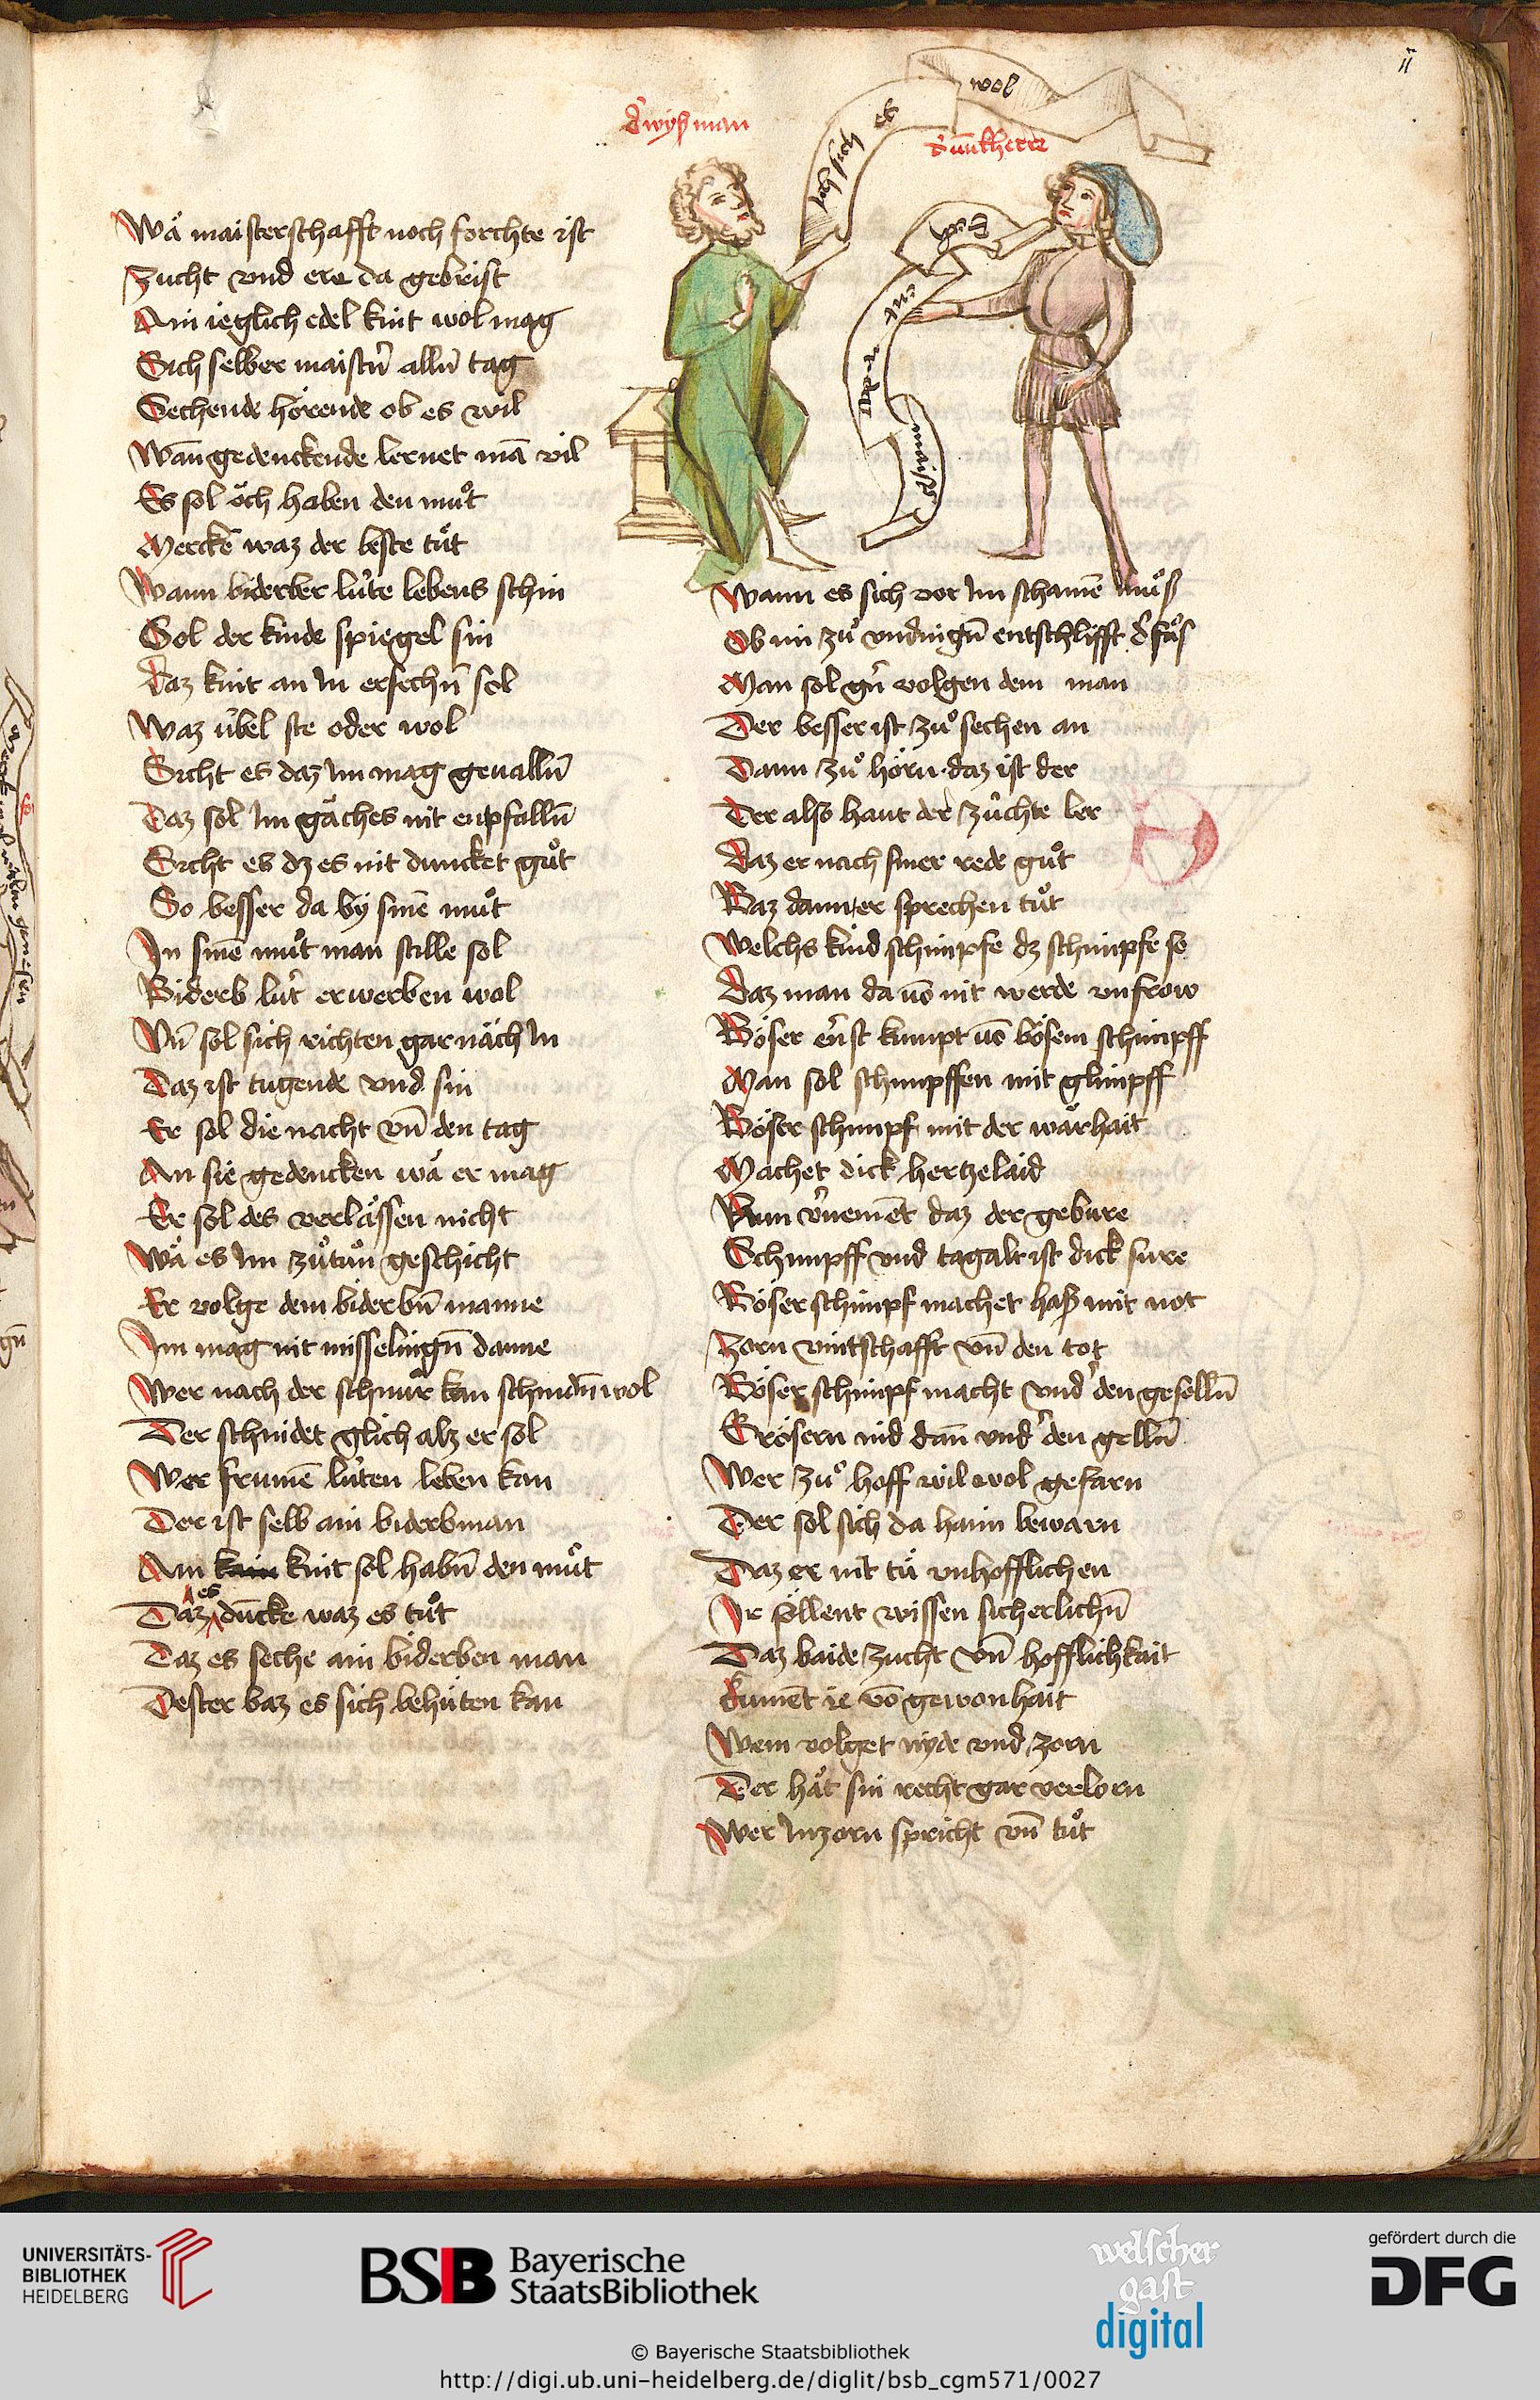 ij
d' wyß man
hab sich es wol
d' iunkherre
bild
nit
waz der
Wä maisterschafft noch forchte ist
Zucht vnd ere da gebrist
Ain ieglich edel kint wol mag
Sich selber maistn̄ alln̄ tag
Sechende hörende ob es wil
Wan̄ gedenckende lernet mā vil
Es sol öch haben den muͦt
Merckē waz der beste tuͦt
Wann biderber lúte lebens schin
Sol der kinde spiegel sin
Daz kint an In ersechn̄ sol
Waz úbel ste oder wol
Sicht es daz Im mag geualln̄
Daz sol Im gäches nit enpfalln̄
Sicht es dz es nit duncket guͦt
So besser da by sinē muͦt
In sinē muͦt man stille sol
Biderb lút erwerben wol
Vn̄ sol sich richten gar näch In
Daz ist tugende vnd sin
Er sol die nacht vn̄ den tag
An sie gedencken wä er mag
Er sol des verlässen nicht
Wä es Im zuͦ tuͦn geschicht
Er volge dem biderbn̄ manne
Im mag nit misselingn̄ danne
Wer nach der schnuͦr kan schnidn̄ wol
Der schnidet glich alz er sol
Wer frumē lúten leben kan
Der ist selb ain biderbman
Ain kain kint sol habn̄ den muͦt
Daz es dūcke waz es tuͦt
Daz es seche ain biderben man
Dester baz es sich behüten kan
Wann es sich vor Im schamē muͦß
Ob im zuͦ vndingn̄ entschlifft d' fuͦs
Man sol gn̄ volgen dem man
Der besser ist zuͦ sechen an
Dann zuͦ hörn. daz ist der
Der also haut der zúchte ler
Daz er nach siner rede guͦt
Baz dann er sprechen tuͦt
Welchs kind schimpfe dz schimpfe so
Daz man da vō nit werde vnfrow
Böser ernst kumpt vō bösem schimpff
Man sol schimpffen mit glimpff
Böser schimpf mit der wärhait
Machet dick hertzelaid
Nun v'nement daz der gebure
Schimpff vnd tagalt ist dick sure
Böser schimpf machet haß mit not
Zorn vintschafft vn̄ den tot
Böser schimpf macht vnd' den geselln̄
Grösern nid dan̄ vnd' den gelln̄
Wer zuͦ hoff wil wol gefarn
Der sol sich da haim bewarn
Daz er nit tuͦ vnhofflichen
Ir söllent wissen sicherlichn̄
Daz baide zucht vn̄ hofflichkait
Kument ie vō gewonhait
Wem volget nyde vnd zorn
Der hät sin recht gar verlorn
Wer In zorn spricht vn̄ tuͦt
UNIVERSITÄTS-
BIBLIOTHEK
HEIDELBERG
BSB Bayerische
StaatsBibliothek
welscher
gast
digital
gefördert durch die
DFG
© Bayerische Staatsbibliothek
http://digi.ub.uni-heidelberg.de/diglit/bsb_cgm571/0027